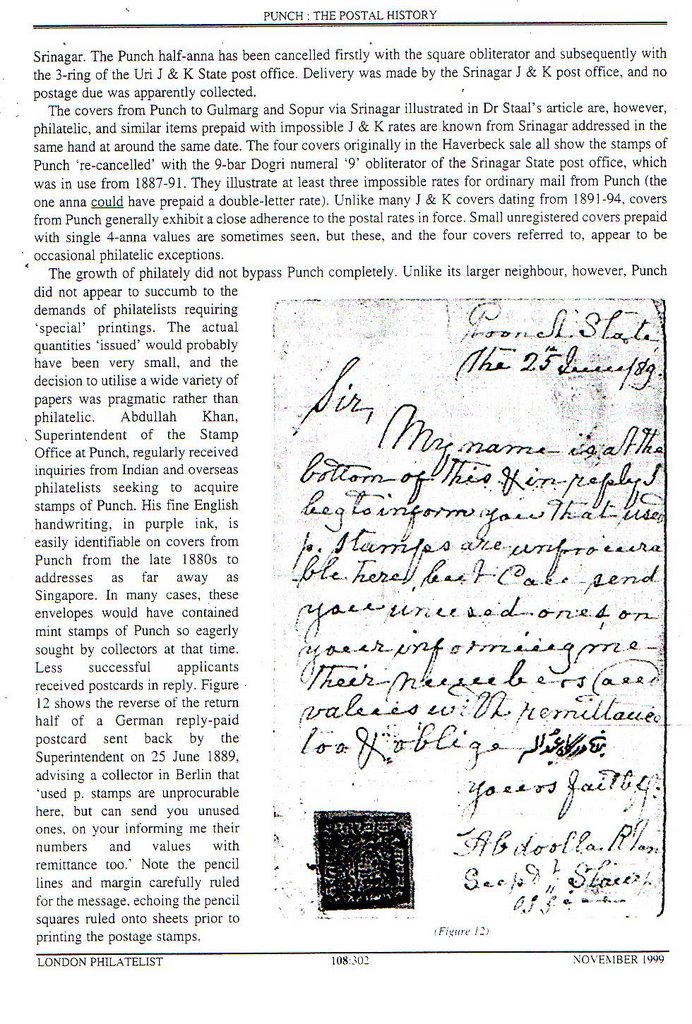 PUNCH : THE POSTAL HISTORY
Srinagar. The Punch half-anna has been cancelled firstly with the square obliterator and subsequently with
the 3-ring of the Uri J & K State post office. Delivery was made by the Srinagar J & K post office, and no
postage due was apparently collected.
The covers from Punch to Gulmarg and Sopur via Srinagar illustrated in Dr Staal's article are, however,
philatelic, and similar items prepaid with impossible J & K rates are known from Srinagar addressed in the
same hand at around the same date. The four covers originally in the Haverbeck sale all show the stamps of
Punch 're-cancelled' with the 9-bar Dogri numeral '9' obliterator of the Srinagar State post office, which
was in use from 1887-91. They illustrate at least three impossible rates for ordinary mail from Punch (the
one anna could have prepaid a double-letter rate). Unlike many J & K covers dating from 1891-94, covers
from Punch generally exhibit a close adherence to the postal rates in force. Small unregistered covers prepaid
with single 4-anna values are sometimes seen, but these, and the four covers referred to, appear to be
occasional philatelic exceptions.
The growth of philately did not bypass Punch completely. Unlike its larger neighbour, however, Punch
did not appear to succumb to the
demands of philatelists requiring
'special' printings. The actual
quantities 'issued' would probably
have been very small, and the
decision to utilise a wide variety of
papers was pragmatic rather than
philatelic. Abdullah Khan,
Superintendent of the Stamp
Office at Punch, regularly received
inquiries from Indian and overseas
philatelists seeking to acquire
stamps of Punch. His fine English
handwriting, in purple ink, is
easily identifiable on covers from
Punch from the late 1880s to
addresses as far away as
Singapore. In many cases, these
envelopes would have contained
mint stamps of Punch so eagerly
sought by collectors at that time.
Less successful applicants
received postcards in reply. Figure
12 shows the reverse of the return
half of a German reply-paid
postcard sent back by the
Superintendent on 25 June 1889,
advising a collector in Berlin that
'used p. stamps are unprocurable
here, but can send you unused
ones, on your informing me their
numbers and values with
remittance too.' Note the pencil
lines and margin carefully ruled
for the message, echoing the pencil
squares ruled onto sheets prior to
printing the postage stamps.
Poonch State
The 25th June /89.
Sir,
My name is at the
bottom of this & in reply I
beg to inform you that used
p. stamps are unprocura
ble here, but Can send
you unused ones, on
your informing me
their numbers and
values with remittance
too & oblige
yours faithf.
Abdoolla Khan
Supdt Stamp
(Figure 12)
LONDON PHILATELIST
108:302
NOVEMBER 1999